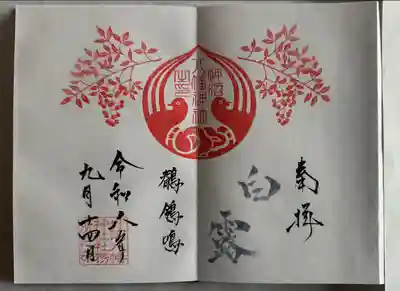 奉拝
白露
鶺鴒鳴
令和六年
九月十四日